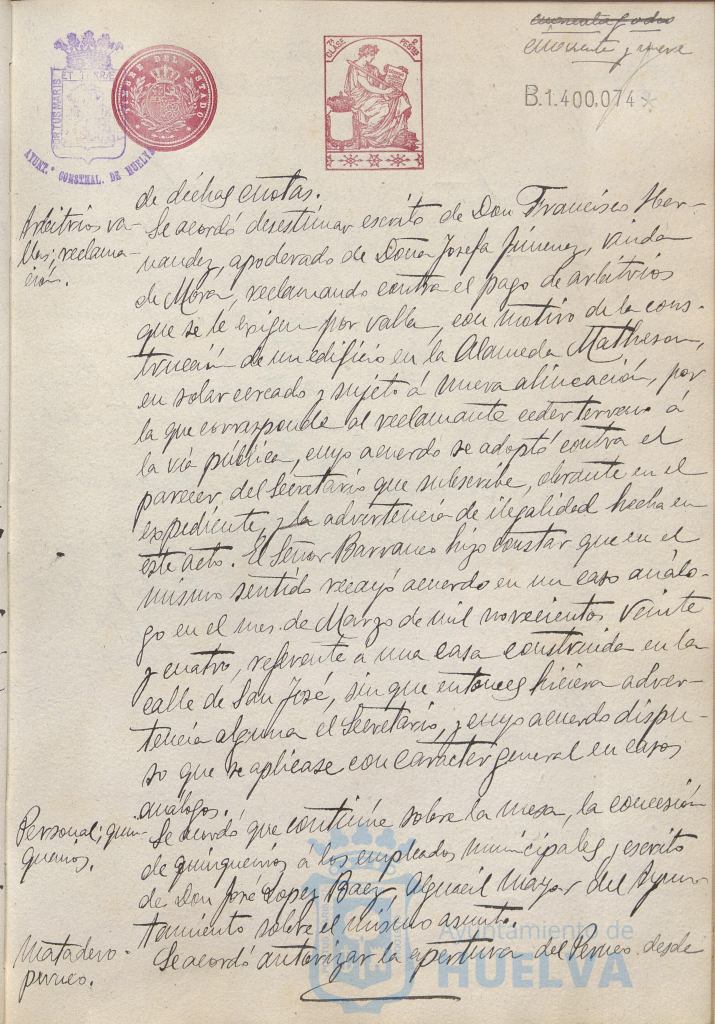 cincuenta y ocho
cincuenta y nueve
B.1.400.074
ET TERRÆ
PORTUS MARIS
AYUNT.º CONSTNAL. DE HUELVA
TIMBRE DEL ESTADO
CLASE 7ª
2 PESETAS
de dichas cuotas.
Arbitrios va-
llas; reclama-
ción.
Se acordó desestimar escrito de Don Francisco Her-
nandez, apoderado de Doña Josefa Jimenez, viuda
de Mora, reclamando contra el pago de arbitrios
que se le exigen por valla, con motivo de la cons-
trucción de un edificio en la Alameda Matheson,
en solar cercado y sujeto á nueva alineación, por
la que corresponde al reclamante ceder terreno á
la via pública, cuyo acuerdo se adoptó contra el
parecer del Secretario que subscribe, obrante en el
expediente, y la advertencia de ilegalidad hecha en
este acto. El Señor Barranco hizo constar que en el
mismo sentido recayó acuerdo en un caso análo-
go en el mes de Marzo de mil novecientos veinte
y cuatro, referente a una casa construida en la
calle de San José, sin que entonces hiciera adver-
tencia alguna el Secretario, y cuyo acuerdo dispu-
so que se aplicase con caracter general en casos
análogos.
Personal; quin-
quenios.
Se acordó que continúe sobre la mesa, la concesión
de quinquenios a los empleados municipales y escrito
de Don José Lopez Baez, Alguacil Mayor del Ayun-
tamiento sobre el mismo asunto.
Matadero
perneo.
Se acordó autorizar la apertura del Perneo desde
Ayuntamiento de
HUELVA